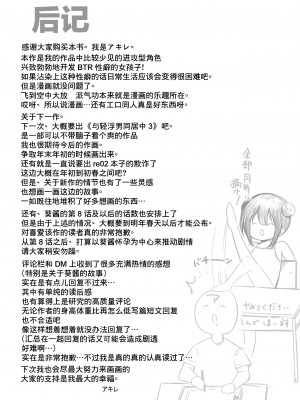 后记
感谢大家购买本书。我是アキレ。
本作是我的作品中比较少见的进攻型角色
兴致勃勃地开发 BTR 性癖的女孩子！
如果沾染上这种性癖的话日常生活应该会变得很难过吧。
但是漫画就没问题了。
飞到空中大放 派气功本来就是漫画的乐趣所在。
哎呀、所以说漫画…还有工口同人真是好东西呀。
关于下一作。
下一次、大概要出《与轻浮男同居中 3》吧。
是一部可以不带脑子看个爽的作品
我也很期待今后的作画。
争取年末年初的时候画出来。
还有就是一直说要出 re02 本子的欺诈了
这边大概在年初到初春之间吧？
但是、关于新作的情节也有了一些灵感
也想画一画这边的故事。
一如既往地堆积了好多想画的东西…
还有、葵酱的第 8 话及以后的话数也安排上了
但是由于上述的情况、大概要到明年春天以后才能公布。
对喜爱该作的读者真的非常抱歉。
从第 8 话之后、打算以葵酱怀孕为中心来推动剧情
请大家稍安勿躁。
评论栏和 DM 上收到了很多充满热情的感想
（特别是关于葵酱的故事）
实在是有点儿回复不过来…
其中有单纯的读后感
也有算得上是研究的高质量评论
无论作者的身高体重比再怎么低写篇短文回复
也不合适吧
像这样想着想着就没办法回复了…
（汇总在一起回复的话又可能会造成剧透
好难啊…）
实在是非常抱歉…不过我是真的真的认真读过了…
下次我也会尽最大努力来画画的
大家的支持是我最大的幸福。
アキレ